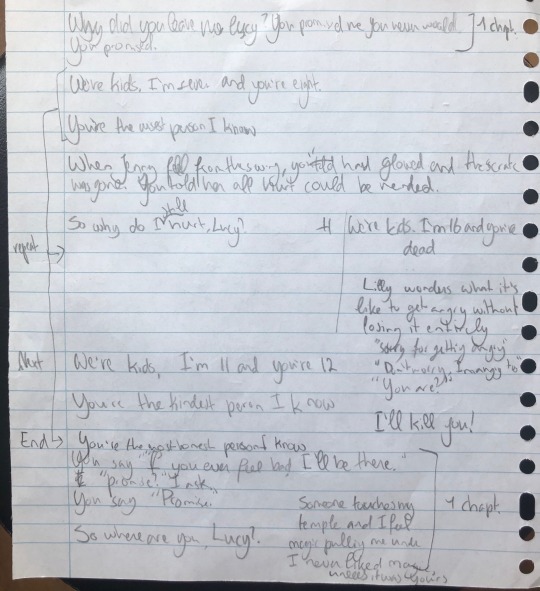 Why did you leave me Lucy? You promised me you never would
You promised.
] 1 chpt.
We're kids. I'm seven and you're eight.
You're the wisest person I know
When Jenny fell from the swing, you had glowed and the scratch
was gone. You told her all hurt could be healed.
So why do I still hurt, Lucy?
repeat →
We're kids. I'm 16 and you're
dead
Lilly wonders what it's
like to get angry without
losing it entirely
"sorry for getting angry"
"Don't worry, I'm angry too"
"You are?"
I'll kill you!
Next We're kids, I'm 11 and you're 12
You're the kindest person I know
End → You're the most honest person I know
You say "If you ever feel bad I'll be there."
"promise?" I ask.
You say "Promise."
So where are you, Lucy?
1 chapt.
Someone touches my
temple and I feel
magic pulling me under
I never liked magic
unless it was yours